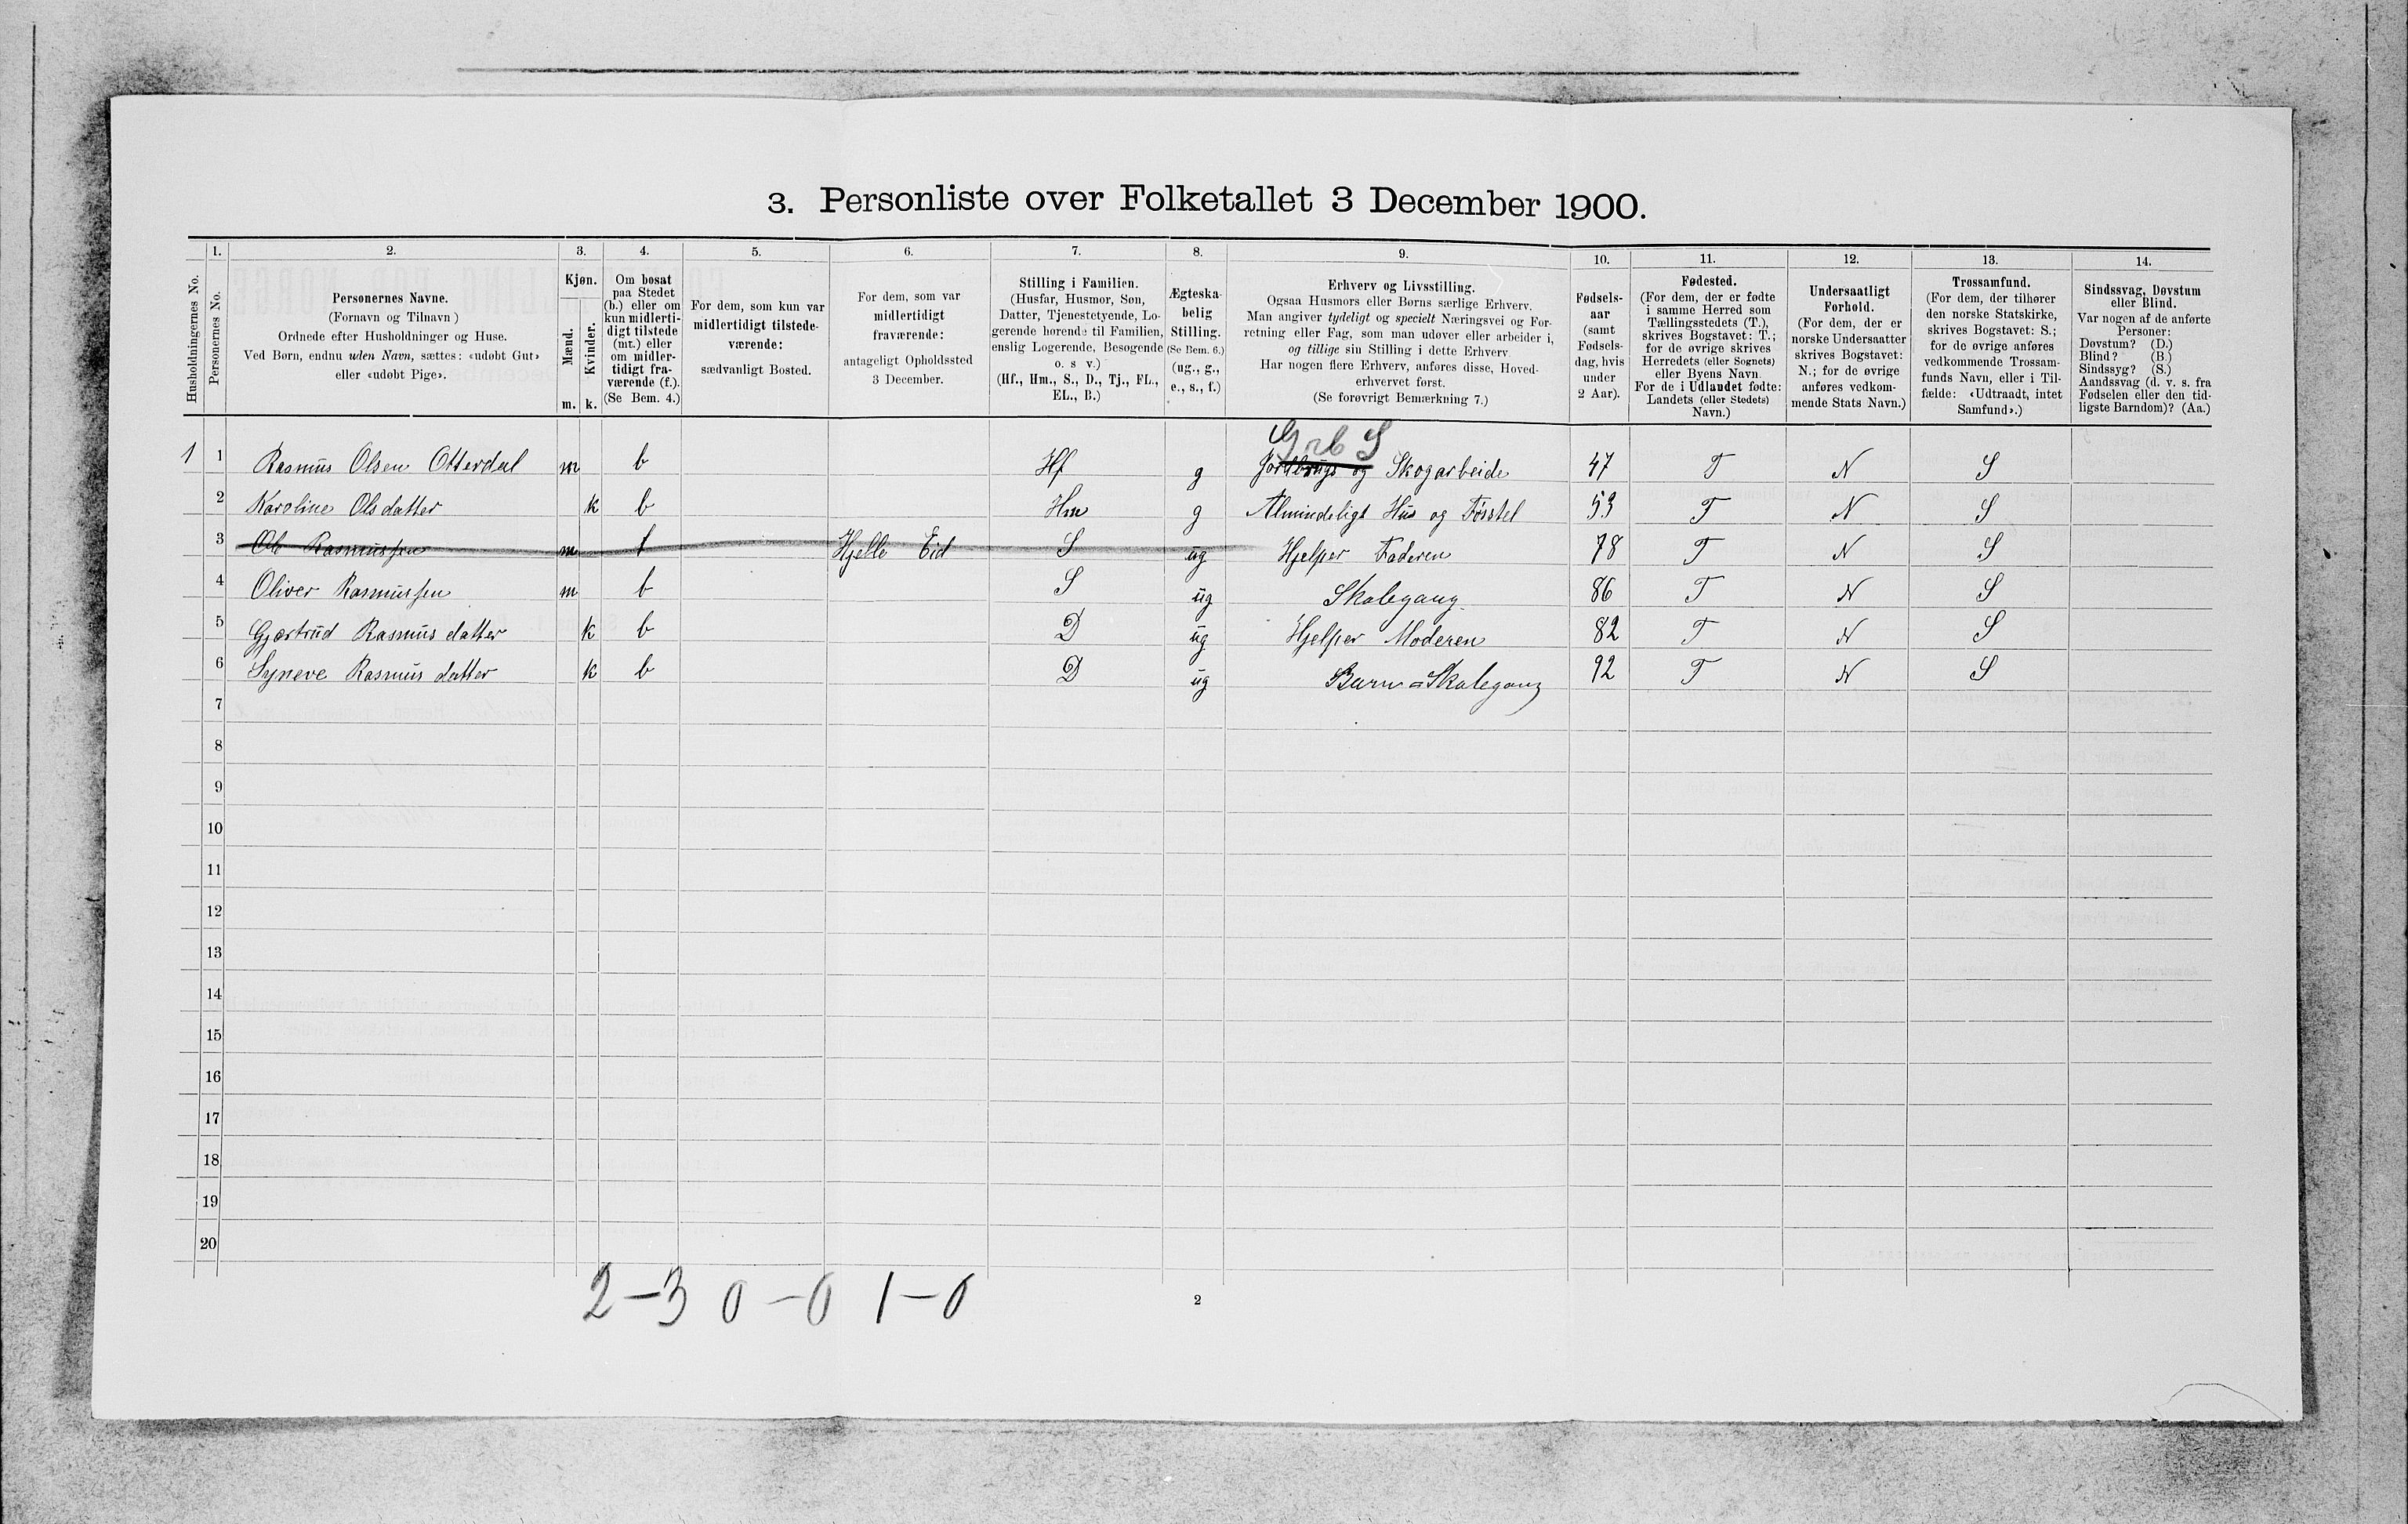 3. Personliste over Folketallet 3 December 1900.
Husholdningernes No.
1.
Personernes No.
2.
Personernes Navne.
(Fornavn og Tilnavn)
Ordnede efter Husholdninger og Huse.
Ved Børn, endnu uden Navn, sættes: «udøbt Gut»
eller «udøbt Pige».
3.
Kjøn.
Mænd.
Kvinder.
m. k.
4.
Om bosat
paa Stedet
(b.) eller om
kun midlerti-
digt tilstede
(mt.) eller
om midler-
tidigt fra-
værende (f.).
(Se Bem. 4.)
5.
For dem, som kun var
midlertidigt tilstede-
værende:
sædvanligt Bosted.
6.
For dem, som var
midlertidigt
fraværende:
antageligt Opholdssted
3 December.
7.
Stilling i Familien.
(Husfar, Husmor, Søn,
Datter, Tjenestetyende, Lo-
gerende hørende til Familien,
enslig Logerende, Besøgende
o. s v.)
(Hf., Hm., S., D., Tj., FL.,
EL., B.)
8.
Ægteska-
belig
Stilling.
(Se Bem. 6.)
(ug., g.,
e., s., f.)
9.
Erhverv og Livsstilling.
Ogsaa Husmors eller Børns særlige Erhverv.
Man angiver tydeligt og specielt Næringsvei og For-
retning eller Fag, som man udøver eller arbeider i,
og tillige sin Stilling i dette Erhverv.
Har nogen flere Erhverv, anføres disse, Hoved-
erhvervet først.
(Se forøvrigt Bemærkning 7.)
10.
Fødsels-
aar
(samt
Fødsels-
dag, hvis
under
2 Aar).
11.
Fødested.
(For dem, der er fødte
i samme Herred som
Tællingsstedets (T.),
skrives Bogstavet: T.;
for de øvrige skrives
Herredets (eller Sognets)
eller Byens Navn.
For de i Udlandet fødte:
Landets (eller Stedets)
Navn.)
12.
Undersaatligt
Forhold.
(For dem, der er
norske Undersaatter
skrives Bogstavet:
N.; for de øvrige
anføres vedkom-
mende Stats Navn.)
13.
Trossamfund.
(For dem, der tilhører
den norske Statskirke,
skrives Bogstavet: S.;
for de øvrige anføres
vedkommende Trossam-
funds Navn, eller i Til-
fælde: «Udtraadt, intet
Samfund».)
14.
Sindssvag, Døvstum
eller Blind.
Var nogen af de anførte
Personer:
Døvstum? (D.)
Blind? (B.)
Sindssyg? (S.)
Aandssvag (d. v. s. fra
Fødselen eller den tid-
ligste Barndom)? (Aa.)
Grb S
1 1 Rasmus Olsen Otterdal m b Hf g Jordbrugs og Skogarbeide 47 T N S
2 Karoline Olsdatter k b Hm g Almindeligt Hus og Føsstel 53 T N S
3 Ole Rasmussen m f Hjelle Eid S ug Hjelper Faderen 78 T N S
4 Oliver Rasmussen m b S ug Skolegang. 86 T N S
5 Gjertrud Rasmusdatter k b D ug Hjelper Moderen 82 T N S
6 Syneve Rasmusdatter k b D ug Barn=Skolegang 92 T N S
7
8
9
10
11
12
13
14
15
16
17
18
19
20
2-3 0-0 1-0
2